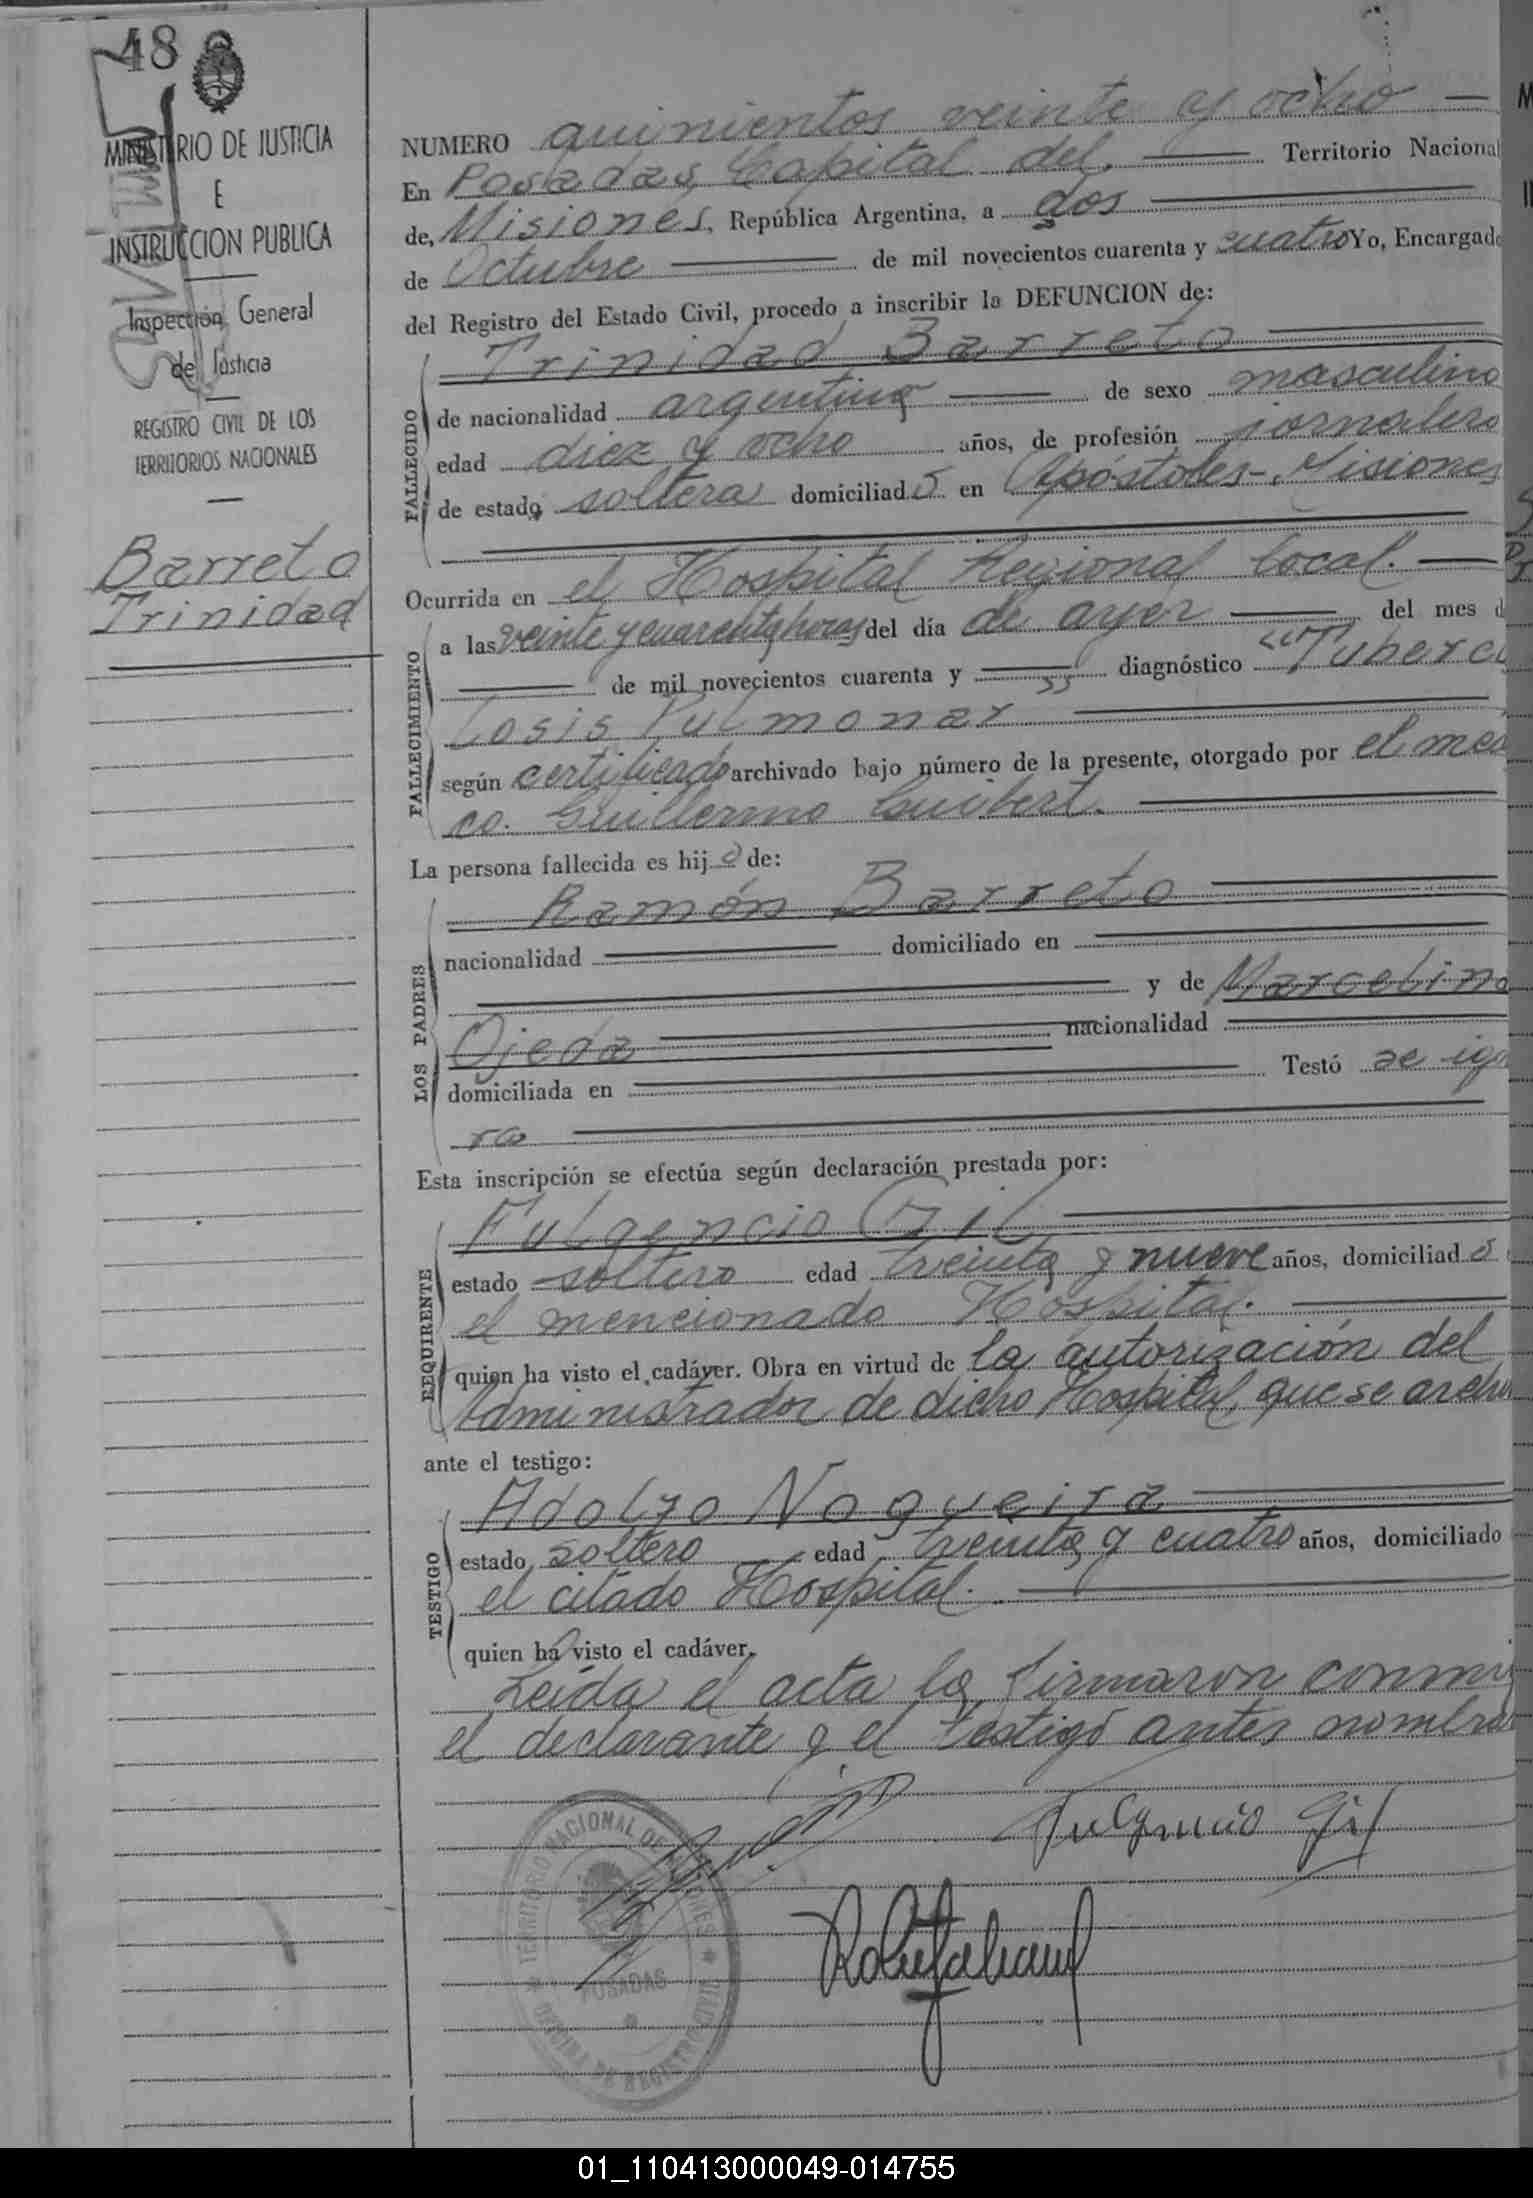 48
MINISTERIO DE JUSTICIA
E
INSTRUCCION PUBLICA
Inspección General
de Justicia
REGISTRO CIVIL DE LOS
TERRITORIOS NACIONALES
Barreto
Trinidad
NUMERO quinientos veinte y ocho
En Posadas, Capital del Territorio Nacional
de, Misiones, República Argentina, a dos
de Octubre de mil novecientos cuarenta y cuatro Yo, Encargado
del Registro del Estado Civil, procedo a inscribir la DEFUNCION de:
FALLECIDO
Trinidad Barreto
de nacionalidad argentina de sexo masculino
edad diez y ocho años, de profesión jornalero
de estado soltera domiciliado en Apóstoles-Misiones
Ocurrida en el Hospital Regional local.
FALLECIMIENTO
a las veinte y cuarenta horas del día de ayer del mes d
de mil novecientos cuarenta y diagnóstico "Tubercu
losis Pulmonar"
según certificado archivado bajo número de la presente, otorgado por el médi
co. Guillermo Guibert.
La persona fallecida es hijo de:
LOS PADRES
Ramón Barreto
nacionalidad domiciliado en
y de Marcelina
Ojeda nacionalidad
domiciliada en Testó se igno
ra
Esta inscripción se efectúa según declaración prestada por:
REQUIRENTE
Fulgencio Gil
estado soltero edad treinta y nueve años, domiciliado
el mencionado Hospital.
quien ha visto el cadáver. Obra en virtud de la autorización del
Administrador de dicho Hospital, que se archi
ante el testigo:
TESTIGO
Adolfo Nogueira
estado soltero edad treinta y cuatro años, domiciliado
el citado Hospital.
quien ha visto el cadáver.
Leída el acta la firmaron conmi
el declarante y el testigo antes nombra
Fulgencio Gil
TERRITORIO NACIONAL DE MISIONES
POSADAS
01_110413000049-014755